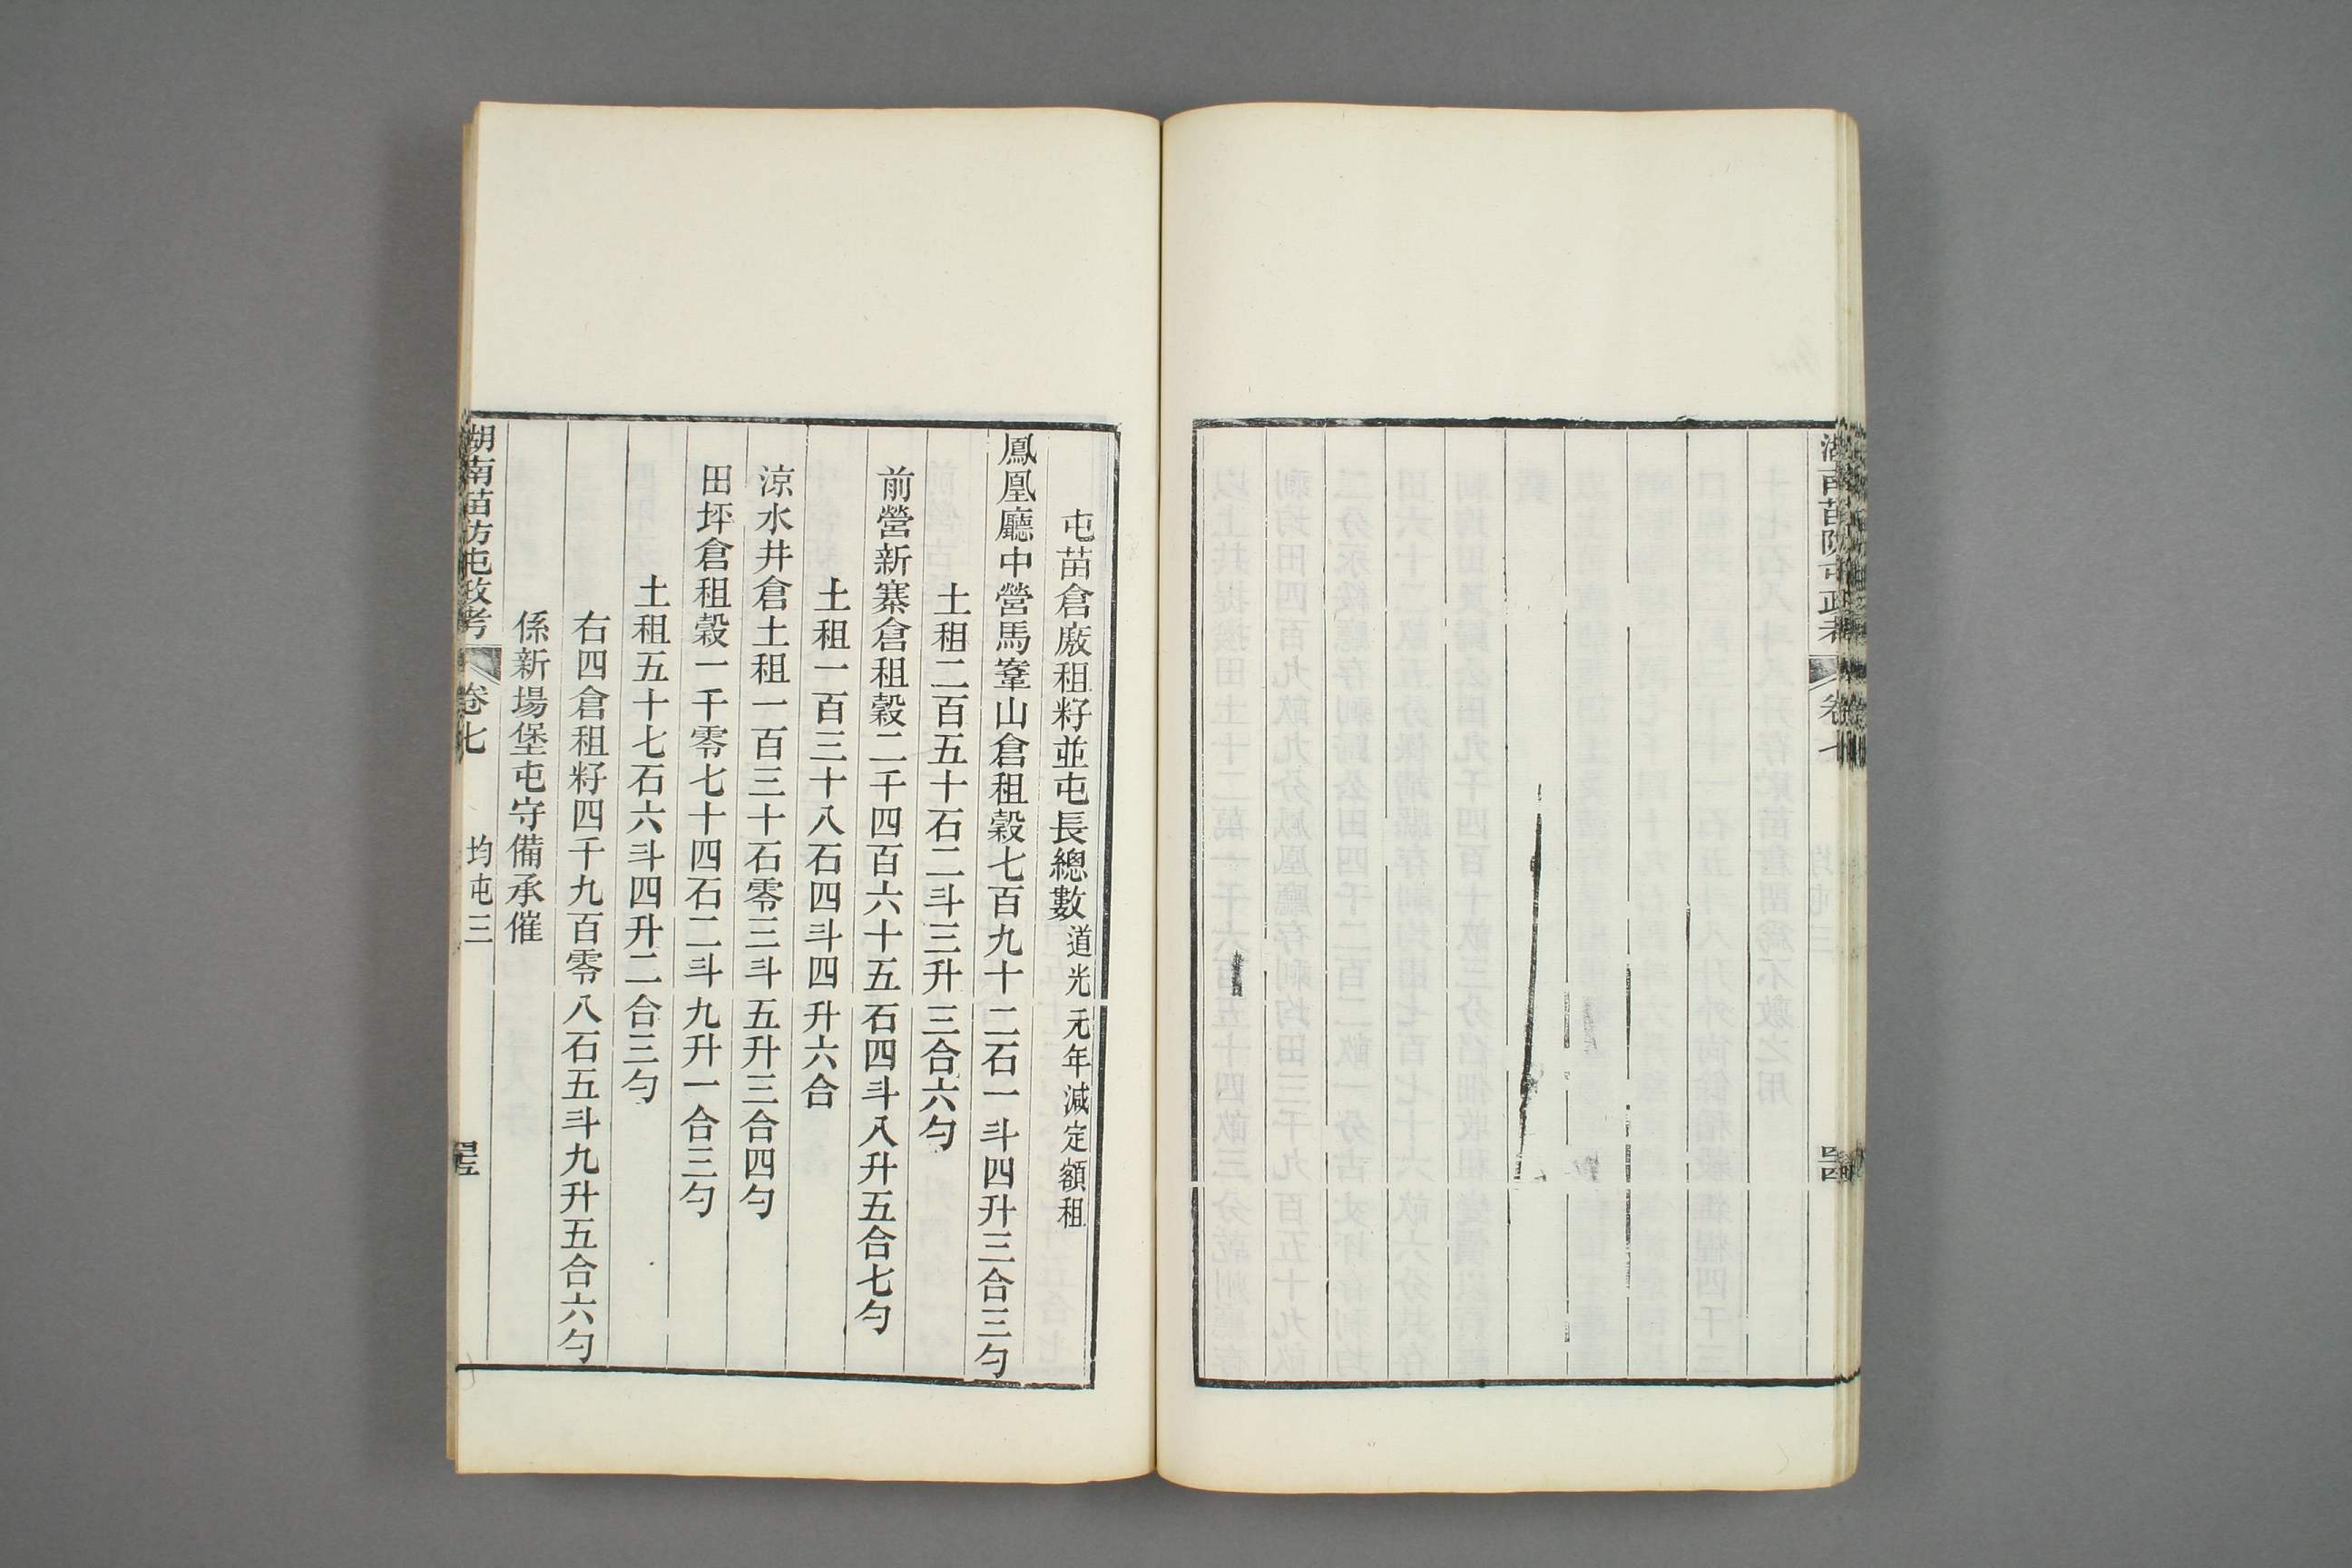 湖南苗防屯政考 卷七 四四
屯苗倉廒租籽並屯長總數道光元年減定額租
鳳凰廳中營馬鞌山倉租穀七百九十二石一斗四升三合三勺
土租二百五十石二斗三升三合六勺
前營新寨倉租穀二千四百六十五石四斗八升五合七勺
土租一百三十八石四斗四升六合
涼水井倉土租一百三十石零三斗五升三合四勺
田坪倉租穀一千零七十四石二斗九升一合三勺
土租五十七石六斗四升二合三勺
右四倉租籽四千九百零八石五斗九升五合六勺
係新場堡屯守備承催
湖南苗防屯政考 卷七 均屯三 四五